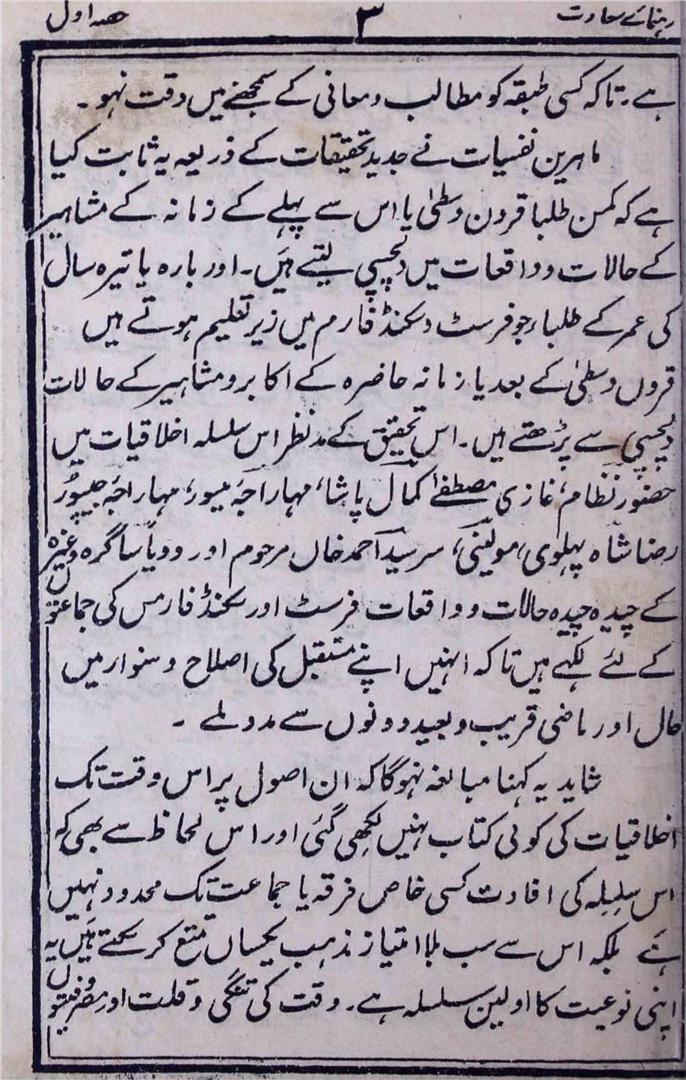 رہنمائے سعادت ۳ حصہ اول
ہے۔ تاکہ کسی طبقہ کو مطالب و معانی کے سمجھنے میں دقت نہو۔
ماہرین نفسیات نے جدید تحقیقات کے ذریعہ یہ ثابت کیا
ہے کہ کمسن طلبا قرون وسطیٰ یا اس سے پہلے کے زمانہ کے مشاہیر
کے حالات و واقعات میں دلچسپی لیتے ہیں۔ اور بارہ یا تیرہ سال
کی عمر کے طلبا، جو فرسٹ و سکنڈ فارم میں زیر تعلیم ہوتے ہیں
قرون وسطیٰ کے بعد یا زمانہ حاضرہ کے اکابر و مشاہیر کے حالات
دلچسپی سے پڑھتے ہیں۔ اس تحقیق کے مدنظر اس سلسلہ اخلاقیات میں
حضور نظام، غازی مصطفےٰ کمال پاشا، مہاراجہ میسور، مہاراجہ جیپور
رضا شاہ پہلوی، مولینی، سر سید احمد خاں مرحوم اور ودیا ساگرہ وغیرہ
کے چیدہ چیدہ حالات و واقعات فرسٹ اور سکنڈ فارمس کی جماعتوں
کے لئے لکہے ہیں تاکہ انہیں اپنے مستقبل کی اصلاح و سنوار میں
حال اور ماضی قریب و بعید دونوں سے مدد ملے ۔
شاید یہ کہنا مبالغہ نہوگا کہ ان اصول پر اس وقت تک
اخلاقیات کی کوئی کتاب نہیں لکھی گئی اور اس لحاظ سے بھی کہ
اس سلسلہ کی افادت کسی خاص فرقہ یا جماعت تک محدود نہیں
ہے بلکہ اس سے سب بلا امتیاز مذہب یکساں متمتع کر سکتے ہیں یہ
اپنی نوعیت کا اولین سلسلہ ہے۔ وقت کی تنگی و قلت اور مصروفیتوں